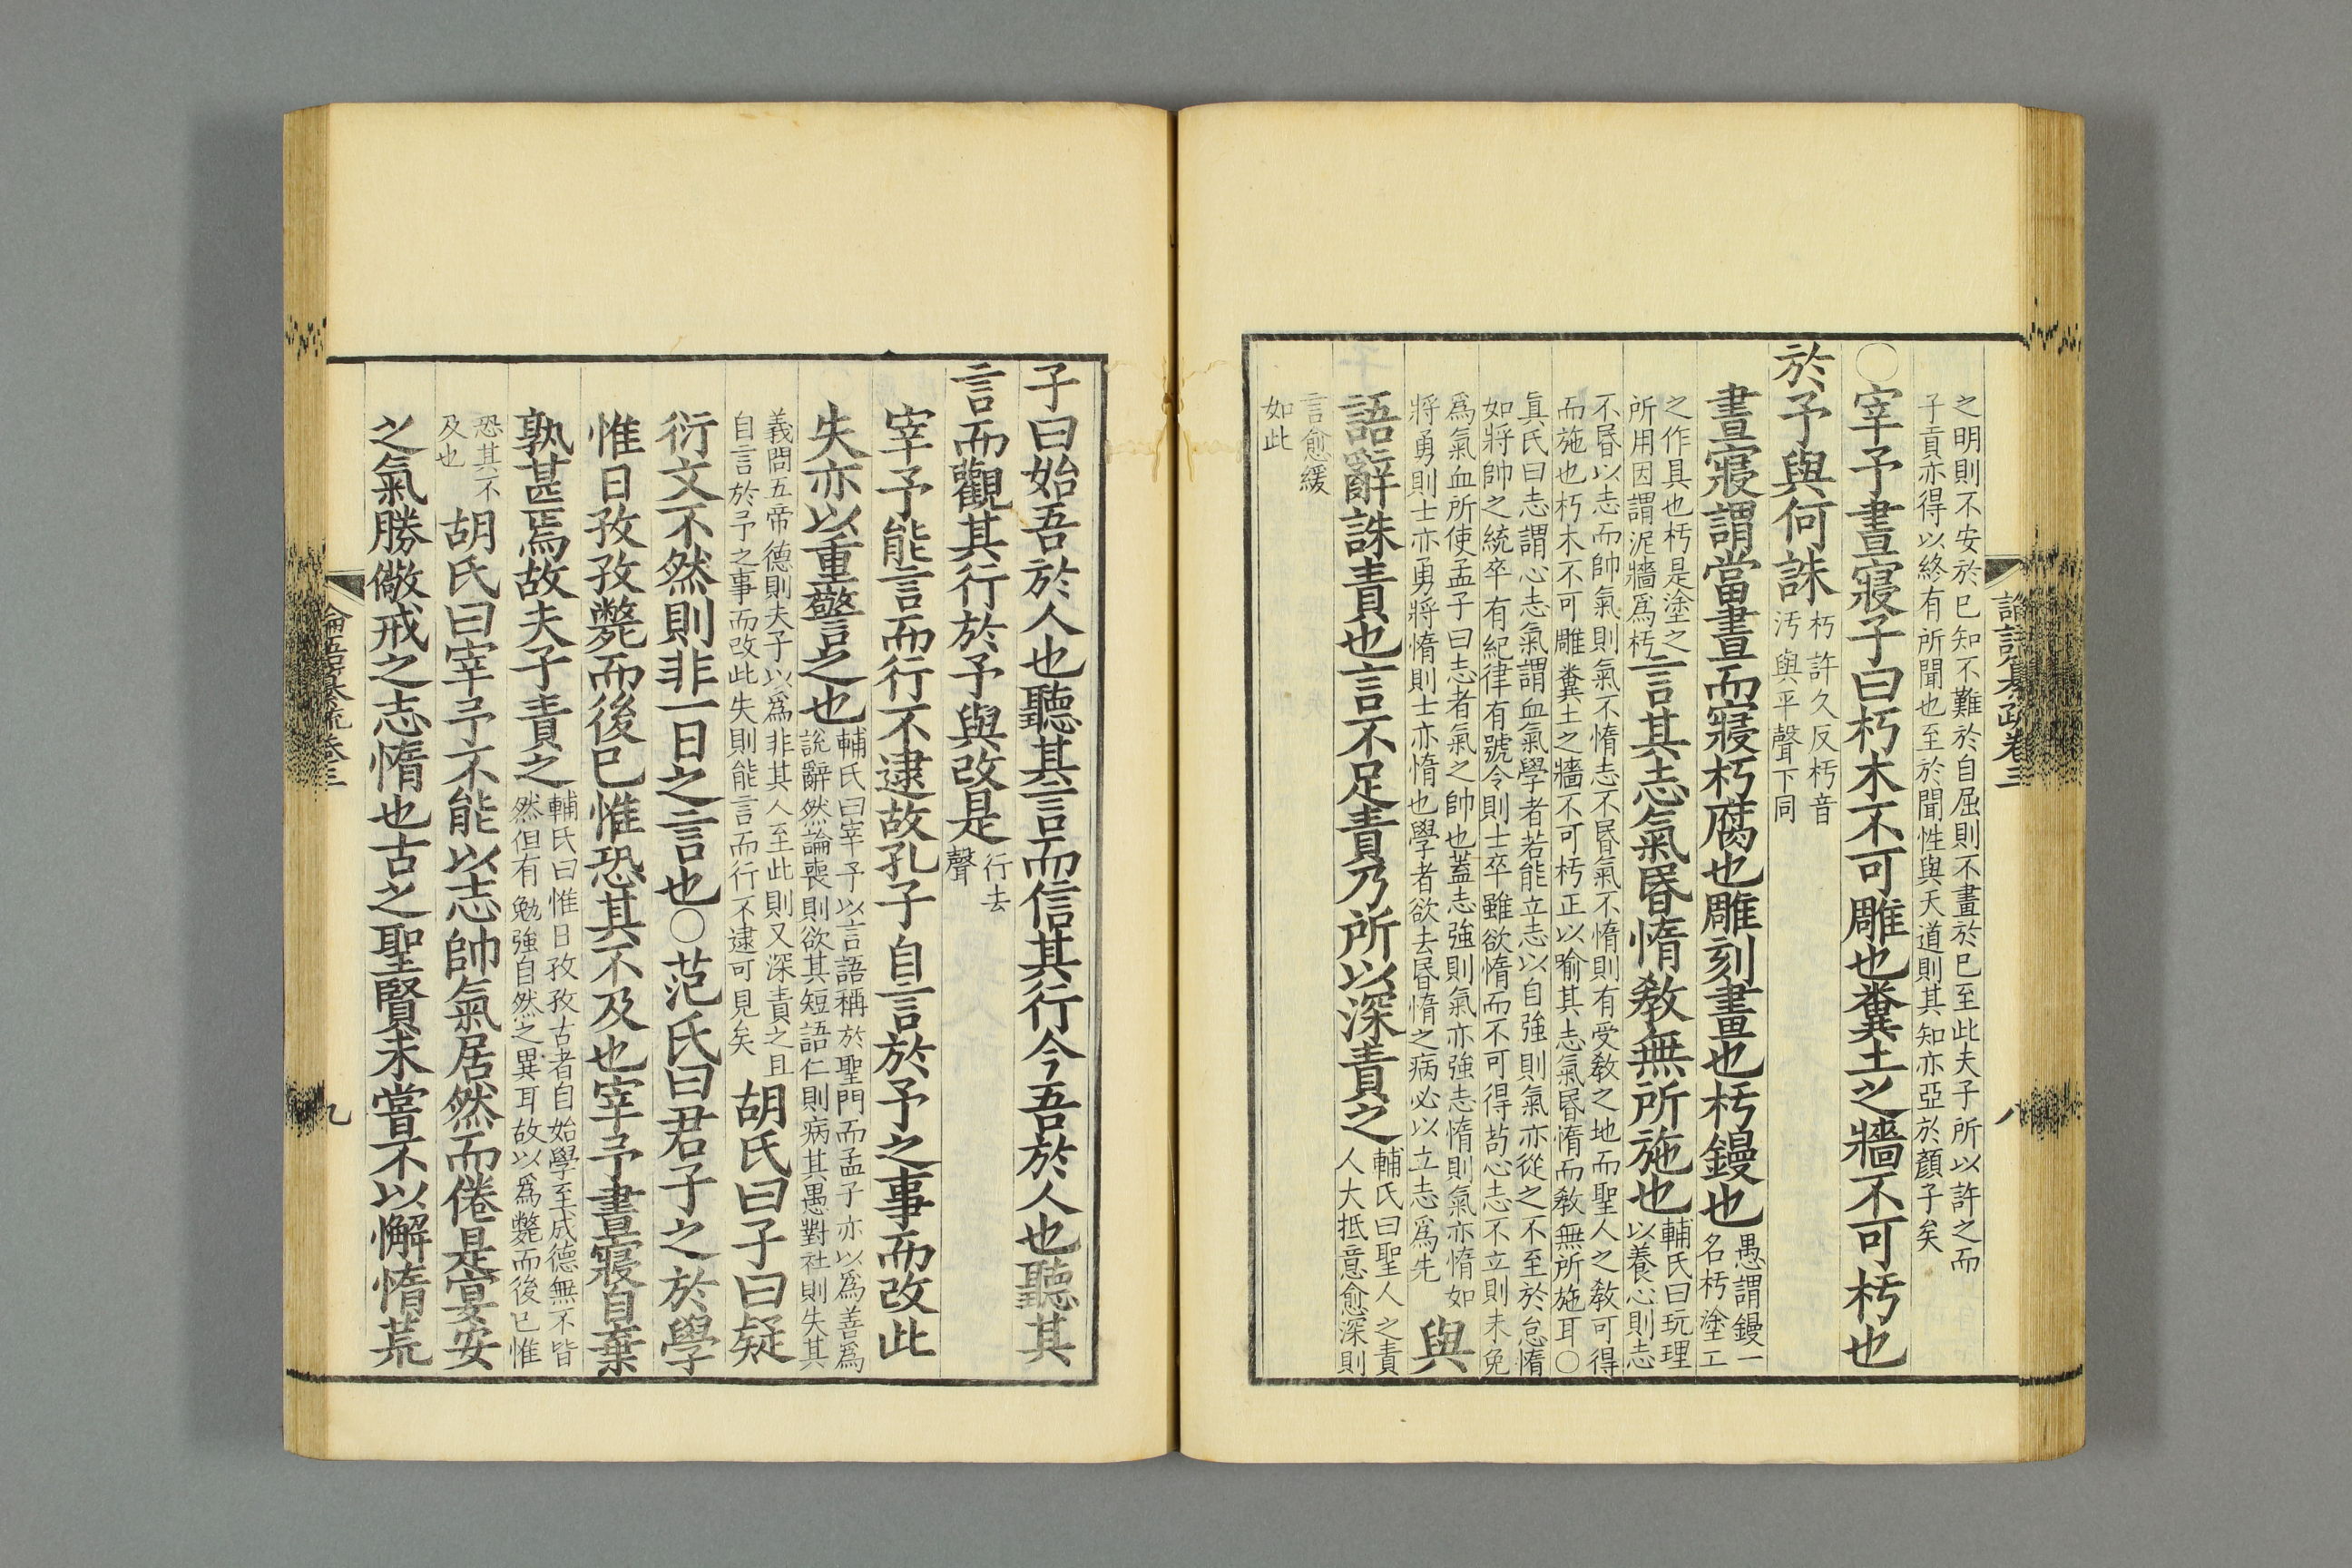 之明則不安於已知不難於自屈則不畫於已至此夫子所以許之而
子貢亦得以終有所聞也至於聞性與天道則其知亦亞於顏子矣
○宰予晝寢子曰朽木不可雕也糞土之牆不可杇也
於予與何誅
朽許久反杇音
汚與平聲下同
晝寢謂當晝而寐朽腐也雕刻畫也杇鏝也
愚謂鏝一
名杇塗工
之作具也杇是塗之
所用因謂泥牆爲杇
言其志氣昬惰敎無所施也
輔氏曰玩理
以養心則志
不昬以志而帥氣則氣不惰志不昬氣不惰則有受敎之地而聖人之敎可得
而施也朽木不可雕糞土之牆不可杇正以喻其志氣昬惰而敎無所施耳○
眞氏曰志謂心志氣謂血氣學者若能立志以自強則氣亦從之不至於怠惰
如將帥之統卒有紀律有號令則士卒雖欲惰而不可得苟心志不立則未免
爲氣血所使孟子曰志者氣之帥也蓋志強則氣亦強志惰則氣亦惰如
將勇則士亦勇將惰則士亦惰也學者欲去昬惰之病必以立志爲先
與
語辭誅責也言不足責乃所以深責之
輔氏曰聖人之責
人大抵意愈深則
言愈緩
如此
論語纂疏卷三
八
子曰始吾於人也聽其言而信其行今吾於人也聽其
言而觀其行於予與改是
行去
聲
宰予能言而行不逮故孔子自言於予之事而改此
失亦以重警之也
輔氏曰宰予以言語稱於聖門而孟子亦以爲善爲
說辭然論喪則欲其短語仁則病其愚對社則失其
義問五帝德則夫子以爲非其人至此則又深責之且
自言於予之事而改此失則能言而行不逮可見矣
胡氏曰子曰疑
衍文不然則非一日之言也○范氏曰君子之於學
惟日孜孜斃而後已惟恐其不及也宰予晝寢自棄
孰甚焉故夫子責之
輔氏曰惟日孜孜古者自始學至成德無不皆
然但有勉強自然之異耳故以爲斃而後已惟
恐其不
及也
胡氏曰宰予不能以志帥氣居然而倦是宴安
之氣勝儆戒之志惰也古之聖賢未嘗不以懈惰荒
論語纂疏卷三
九